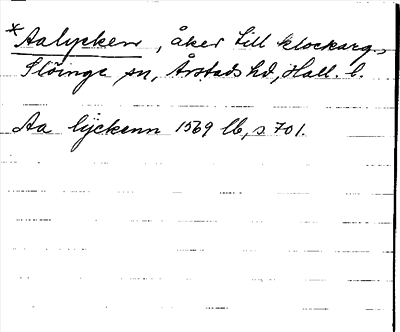 *Aalycken, åker till klockarg.,
Slöinge sn, Årstads hd, Hall. l.
Aa lÿckenn 1569 lb, s 701.